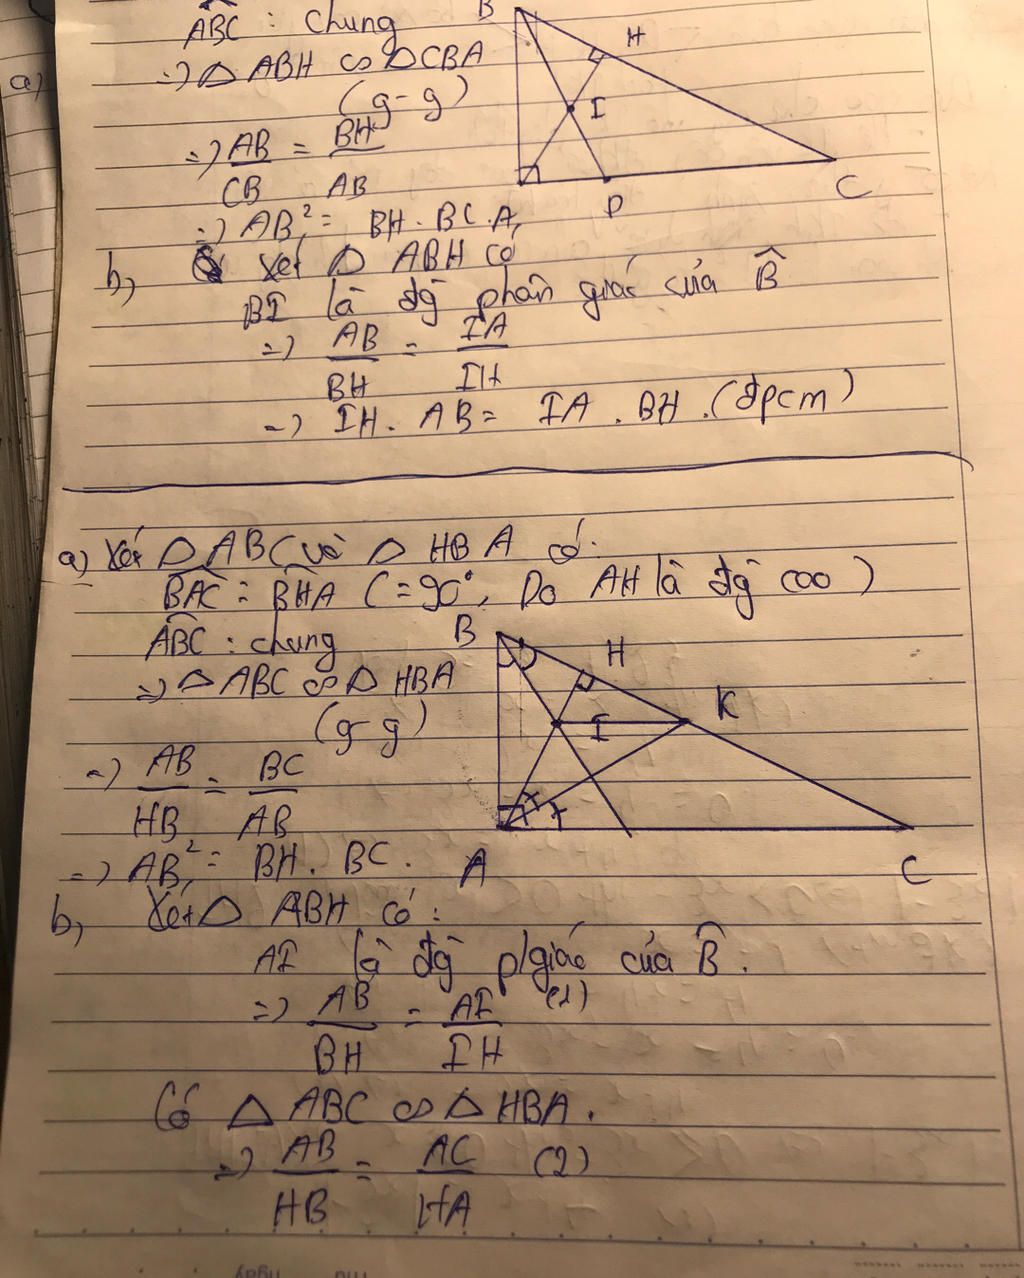 ABC : chung
a)
=) △ ABH ∽ △CBA
(g-g)
=) AB/CB = BH/AB
=) AB² = BH . BC . A,
b) Xét △ ABH có
BI là đg` phân giác của B̂
=) AB/BH = IA/IH
=) IH . AB = IA . BH . (đpcm)
B
H
I
C
D
a) Xét △ ABC và △ HBA có:
BAC = BHA (= 90°, Do AH là đg` cao)
ABC : chung
=) △ ABC ∽ △ HBA
(g-g)
=) AB/HB = BC/AB
=) AB² = BH . BC .
B
H
K
I
A
C
b, Xét △ ABH có :
AI là đg` p/giác của B̂ .
=) AB/BH = AI/IH (1)
Có △ ABC ∽ △ HBA .
=) AB/HB = AC/HA (2)